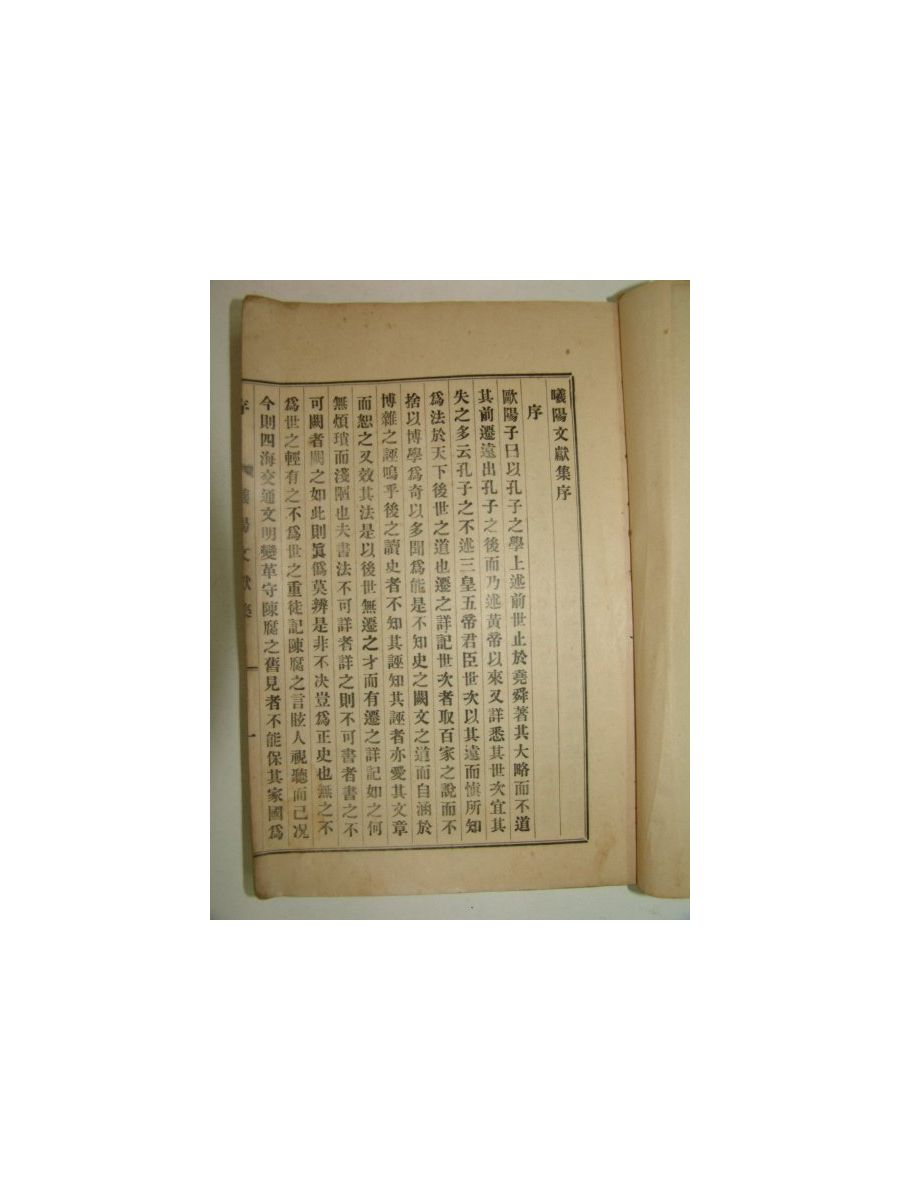 曦陽文獻集序
序
歐陽子曰以孔子之學上述前世止於堯舜著其大略而不道
其前遷遠出孔子之後而乃述黃帝以來又詳悉其世次宜其
失之多云孔子之不述三皇五帝君臣世次以其遠而慎所知
爲法於天下後世之道也遷之詳記世次者取百家之說而不
捨以博學爲奇以多聞爲能是不知史之闕文之道而自涵於
博雜之誣嗚乎後之讀史者不知其誣知其誣者亦愛其文章
而恕之又效其法是以後世無遷之才而有遷之詳記如之何
無煩瑣而淺陋也夫書法不可詳者詳之則不可書者書之不
可闕者闕之如此則眞僞莫辨是非不决豈爲正史也無之不
爲世之輕有之不爲世之重徒記陳腐之言眩人視聽而已况
今則四海交通文明變革守陳腐之舊見者不能保其家國爲
序 陽文獻集 一